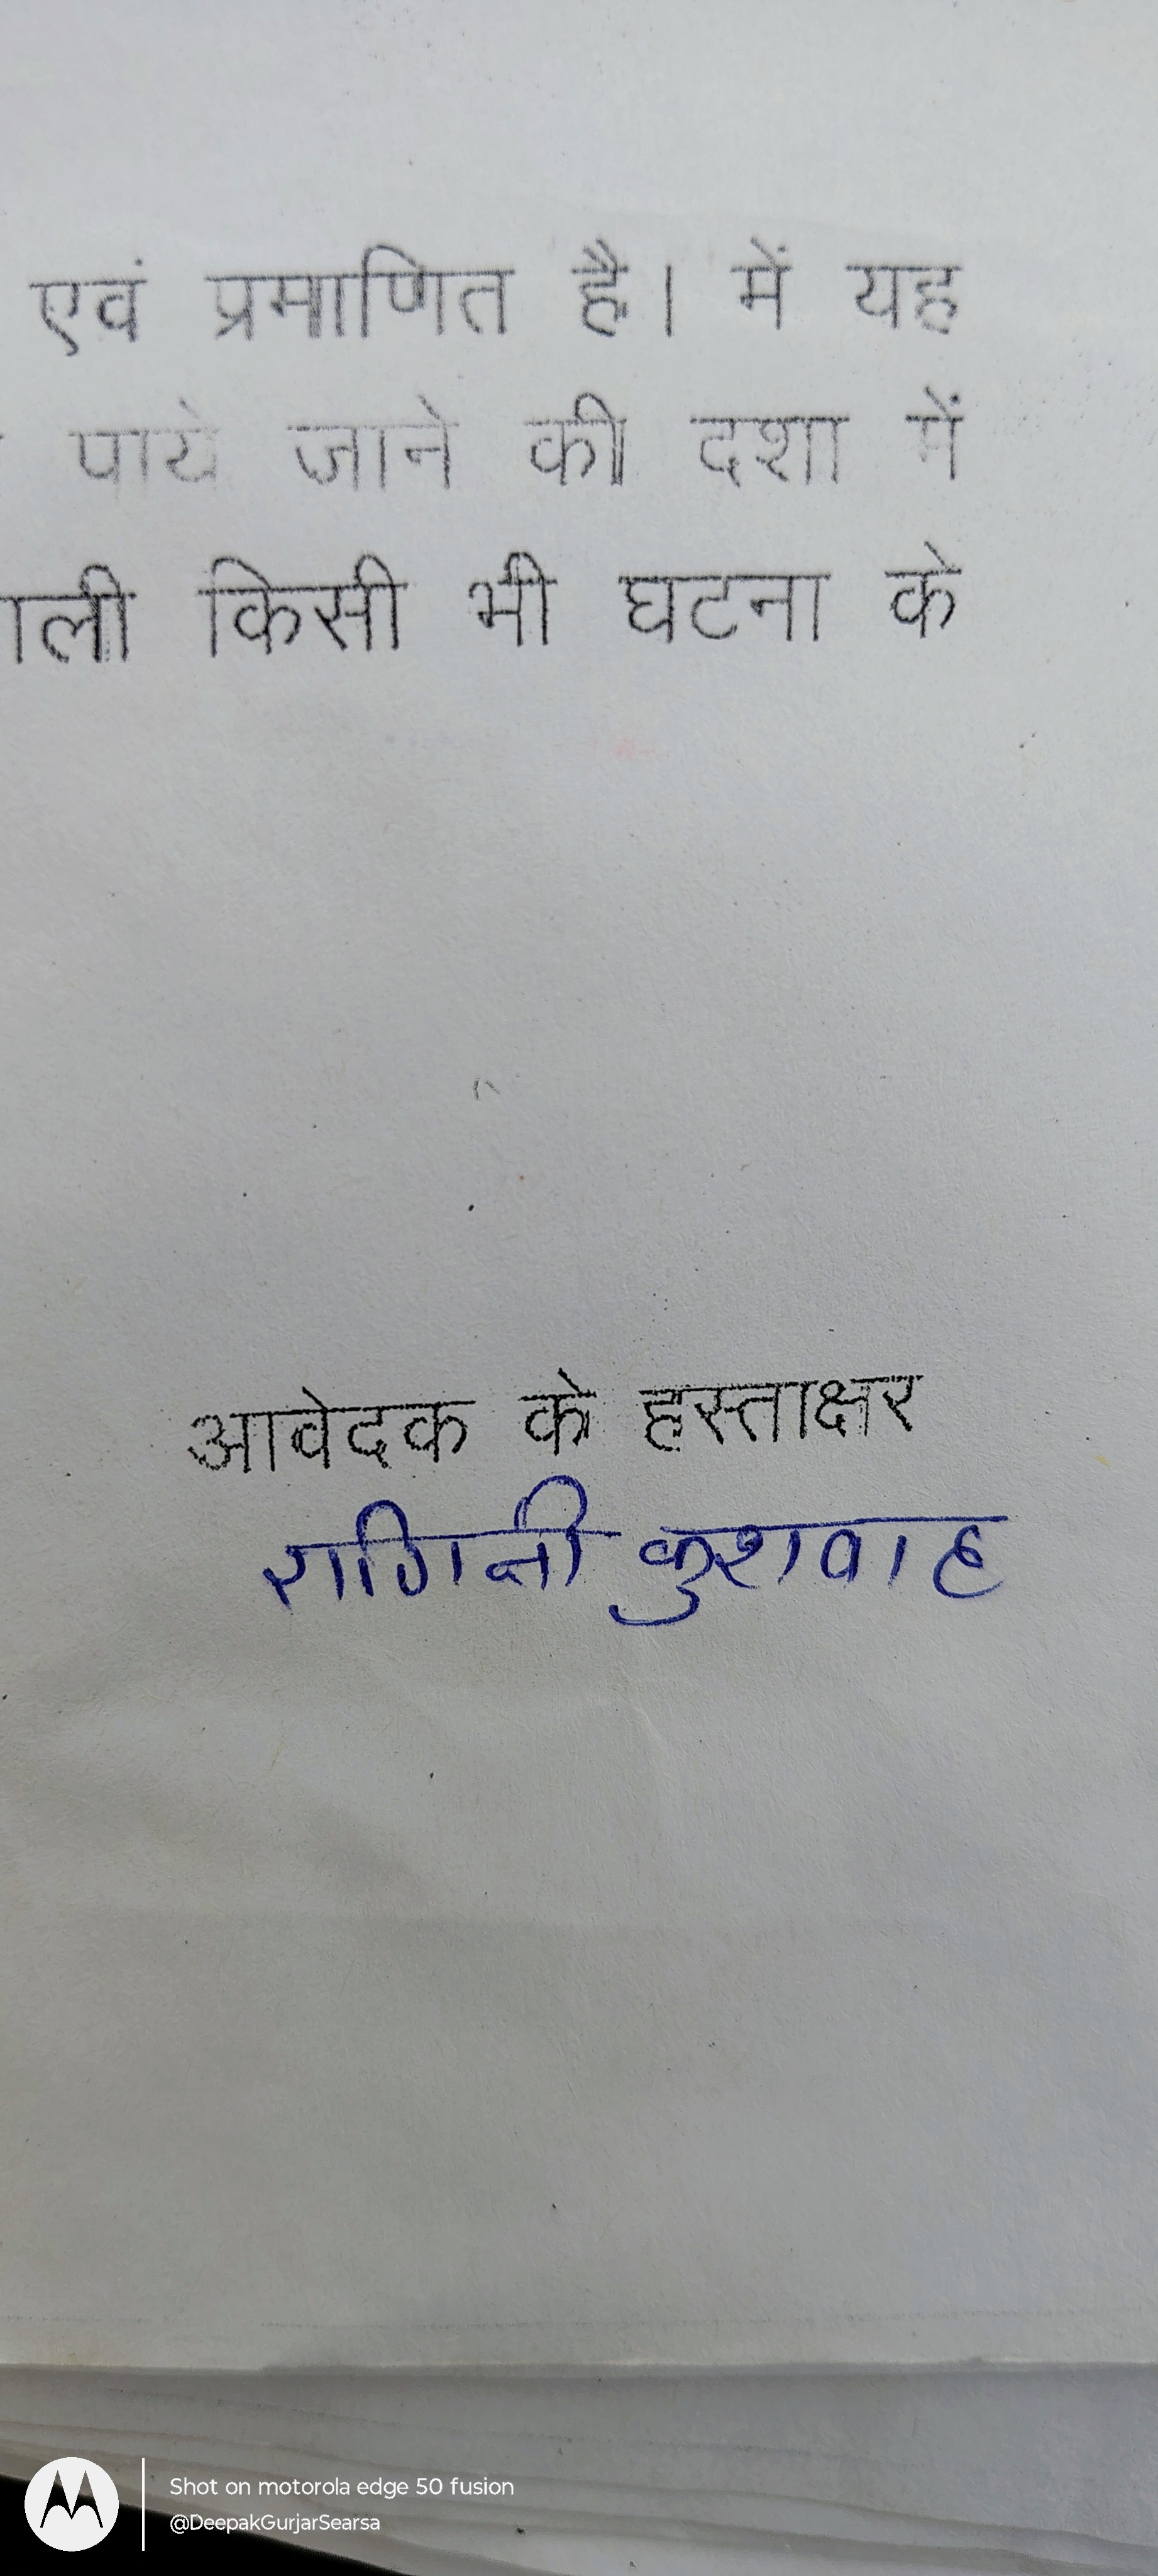 एवं प्रमाणित है। में यह
पाये जाने की दशा में
ाली किसी भी घटना के
आवेदक के हस्ताक्षर
रागिनी कुशवाह
Shot on motorola edge 50 fusion
@DeepakGurjarSearsa